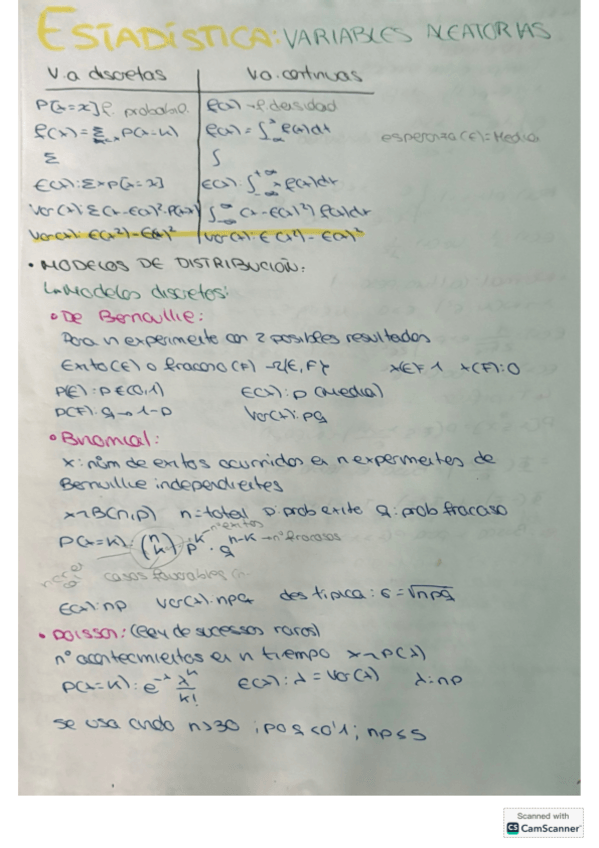 ESTADÍSTICA: VARIABLES ALEATORIAS
V.a discretas | Va. continuas
P[x=x] f. probabilid. | f(x) → f. densidad
F(x) = Σ P(x=k) | F(x) = ∫ f(t)dt esperanza (E) = Media
Σ | ∫
E(x): Σx P[x=x] | E(x): ∫_{-∞}^{+∞} x f(x)dx
Var(x): Σ(x-E(x))²·P(x=x) | ∫_{-∞}^{∞} (x-E(x))² f(x)dx
Var(x): E(x²)-E(x)² | Var(x): E(x²)-E(x)²
• MODELOS DE DISTRIBUCIÓN:
↳ Modelos discretos:
• De Bernoullie:
Para n experimento con 2 posibles resultados
Exito (E) o fracaso (F) → Ω{E, F} x(E)=1 x(F)=0
P(E): p ∈ (0,1) E(x): p (Media)
P(F): q → 1-p Var(x): pq
• Binomial:
x: núm de exitos ocurridos en n experimentos de
Bernoullie independientes
x~B(n,p) n=total p: prob exito q: prob fracaso
P(x=k): (n k) p^k · q^{n-k} nº exitos → nº fracasos
casos favorables
E(x): np Var(x): npq des tipica: σ = √npq
• POISSON: (Ley de sucesos raros)
nº acontecimientos en n tiempo x~P(λ)
P(x=k): e^{-λ} λ^k/k! E(x): λ = Var(x) λ: np
se usa cndo n>30 ; p o q <0'1 ; np≤5
Scanned with
CS CamScanner